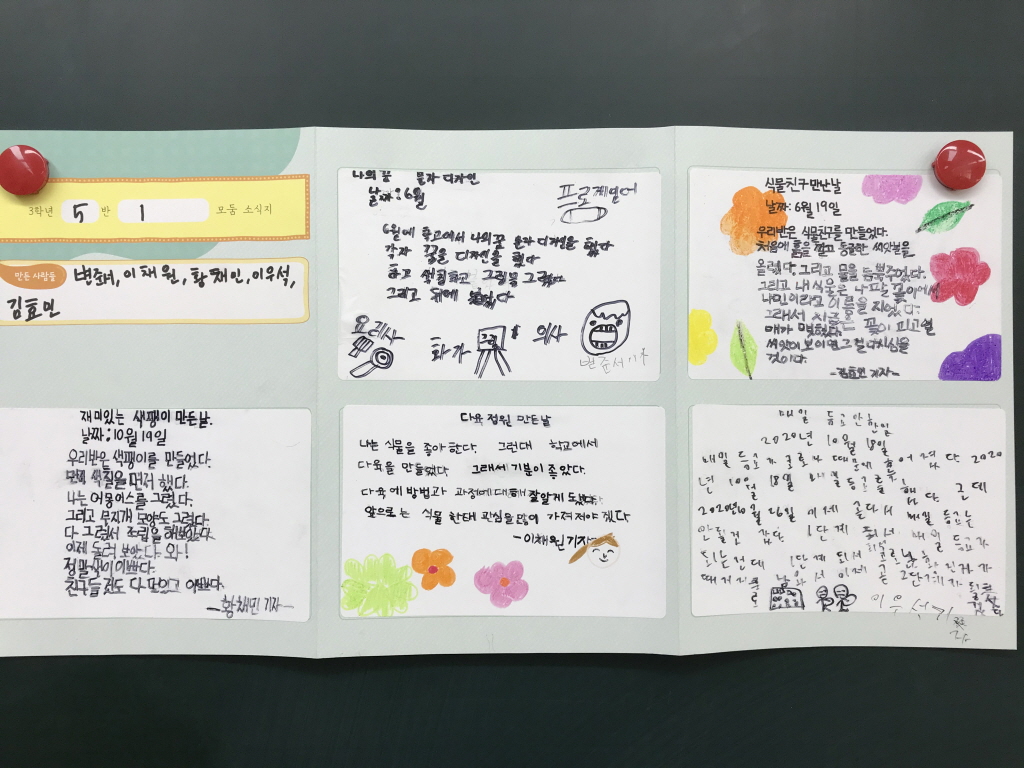 3학년 5 반 1 모둠 소식지
만든 사람들 변준서, 이채원, 황채민, 이우석,
김효민
나의 꿈 문자 디자인
날짜:6월
6월에 학교에서 나의꿈 문자 디자인을 했다
각자 꿈을 디자인을 했다
하고 색칠하고 그림을
그리고 뒤에
요리사
화가
의사
변준서기자
식물친구 만난날
날짜: 6월 19일
우리반은 식물친구를 만들었다.
처음에 흙을 깔고 동글한 씨앗을
올렸다. 그리고 물을 듬뿍주었다.
그리고 내 식물을
나민이라고 이름을 지었다.
그래서
꽃이 피고
씨앗이 보이면 그걸 다시심을
것이다.
-김효민 기자-
재미있는 색팽이 만든날.
날짜:10월 19일
우리반은 색팽이를 만들었다.
먼저 색칠을 먼저 했다.
나는 어몽어스를 그렸다.
그리고 무지개 모양도 그렸다.
다 그려서 조립을 해보았다.
이제 돌려 보았다 와!
정말 색이 이쁘다.
친구들 것도 다 멋있고 이쁘다.
-황채민 기자-
다육 정원 만든날
나는 식물을 좋아 한다. 그런대 학교에서
다육을 만들었다. 그래서 기분이 좋았다.
다육에 방법과 과정에 대해 잘알게 됬다.
앞으로는 식물 한태 관심을 많이 가져져야 겠다
-이채원기자-
매일 등교안한일
2020년 10월 18일
매일 등교가 코로나 때문에 어렵다 2020
년 10월 18일 매일 등교를 했다 근데
2020년 10월 26일 이제 온다서 매일 등교는
안될것 같다 1단계 줄서 매일 등교가
되는건데 1단계 되서 코로나 확진자가
이제 는 2단계가 될
이우석기자